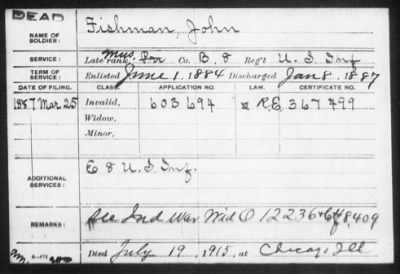 DEAD
NAME OF SOLDIER: Fishman, John
SERVICE: Late rank, Mus. Co. B. 8 Reg't U. S. Inf.
TERM OF SERVICE: Enlisted June 1. 1884 Discharged Jan 8. 1887
DATE OF FILING. CLASS. APPLICATION NO. LAW. CERTIFICATE NO.
1887 Mar 25 Invalid, 603694 R.E. 367499
Widow,
Minor,
ADDITIONAL SERVICES: E 8 U. S. Inf.
REMARKS: See Ind War Wid O 12236
Died July 19, 1915, at Chicago Ill